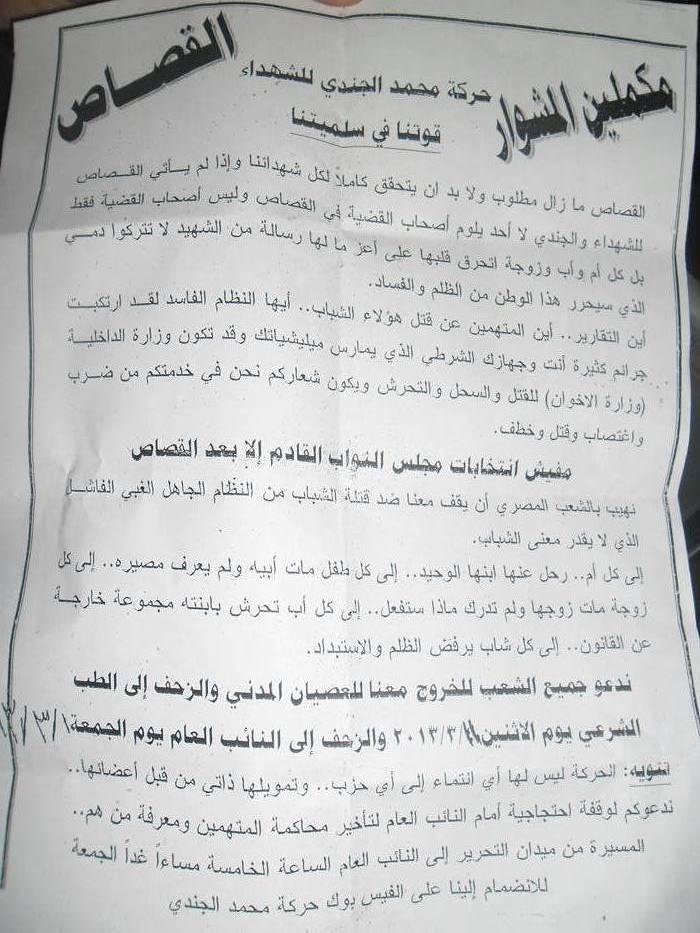 القصاص
مكملين المشوار
حركة محمد الجندي للشهداء
قوتنا في سلميتنا
القصاص ما زال مطلوب ولا بد ان يتحقق كاملاً لكل شهدائنا وإذا لم يأتي القصاص
للشهداء والجندي لا أحد يلوم أصحاب القضية في القصاص وليس أصحاب القضية فقط
بل كل أم وأب وزوجة اتحرق قلبها على أعز ما لها رسالة من الشهيد لا تتركوا دمي
الذي سيحرر هذا الوطن من الظلم والفساد.
أين التقارير.. أين المتهمين عن قتل هؤلاء الشباب.. أيها النظام الفاسد لقد ارتكبت
جرائم كثيرة أنت وجهازك الشرطي الذي يمارس ميليشياتك وقد تكون وزارة الداخلية
(وزارة الاخوان) للقتل والسحل والتحرش ويكون شعاركم نحن في خدمتكم من ضرب
واغتصاب وقتل وخطف.
مفيش انتخابات مجلس النواب القادم إلا بعد القصاص
نهيب بالشعب المصري أن يقف معنا ضد قتلة الشباب من النظام الجاهل الغبي الفاشل
الذي لا يقدر معنى الشباب.
إلى كل أم.. رحل عنها ابنها الوحيد.. إلى كل طفل مات أبيه ولم يعرف مصيره.. إلى كل
زوجة مات زوجها ولم تدرك ماذا ستفعل.. إلى كل أب تحرش بابنته مجموعة خارجة
عن القانون.. إلى كل شاب يرفض الظلم والاستبداد.
ندعو جميع الشعب للخروج معنا للعصيان المدني والزحف إلى الطب
الشرعي يوم الاثنين ٢٠١٣/٣/ والزحف إلى النائب العام يوم الجمعة
تنويه: الحركة ليس لها أي انتماء إلى أي حزب.. وتمويلها ذاتي من قبل أعضائها..
ندعوكم لوقفة احتجاجية أمام النائب العام لتأخير محاكمة المتهمين ومعرفة من هم..
المسيرة من ميدان التحرير إلى النائب العام الساعة الخامسة مساءاً غداً الجمعة
للانضمام إلينا على الفيس بوك حركة محمد الجندي